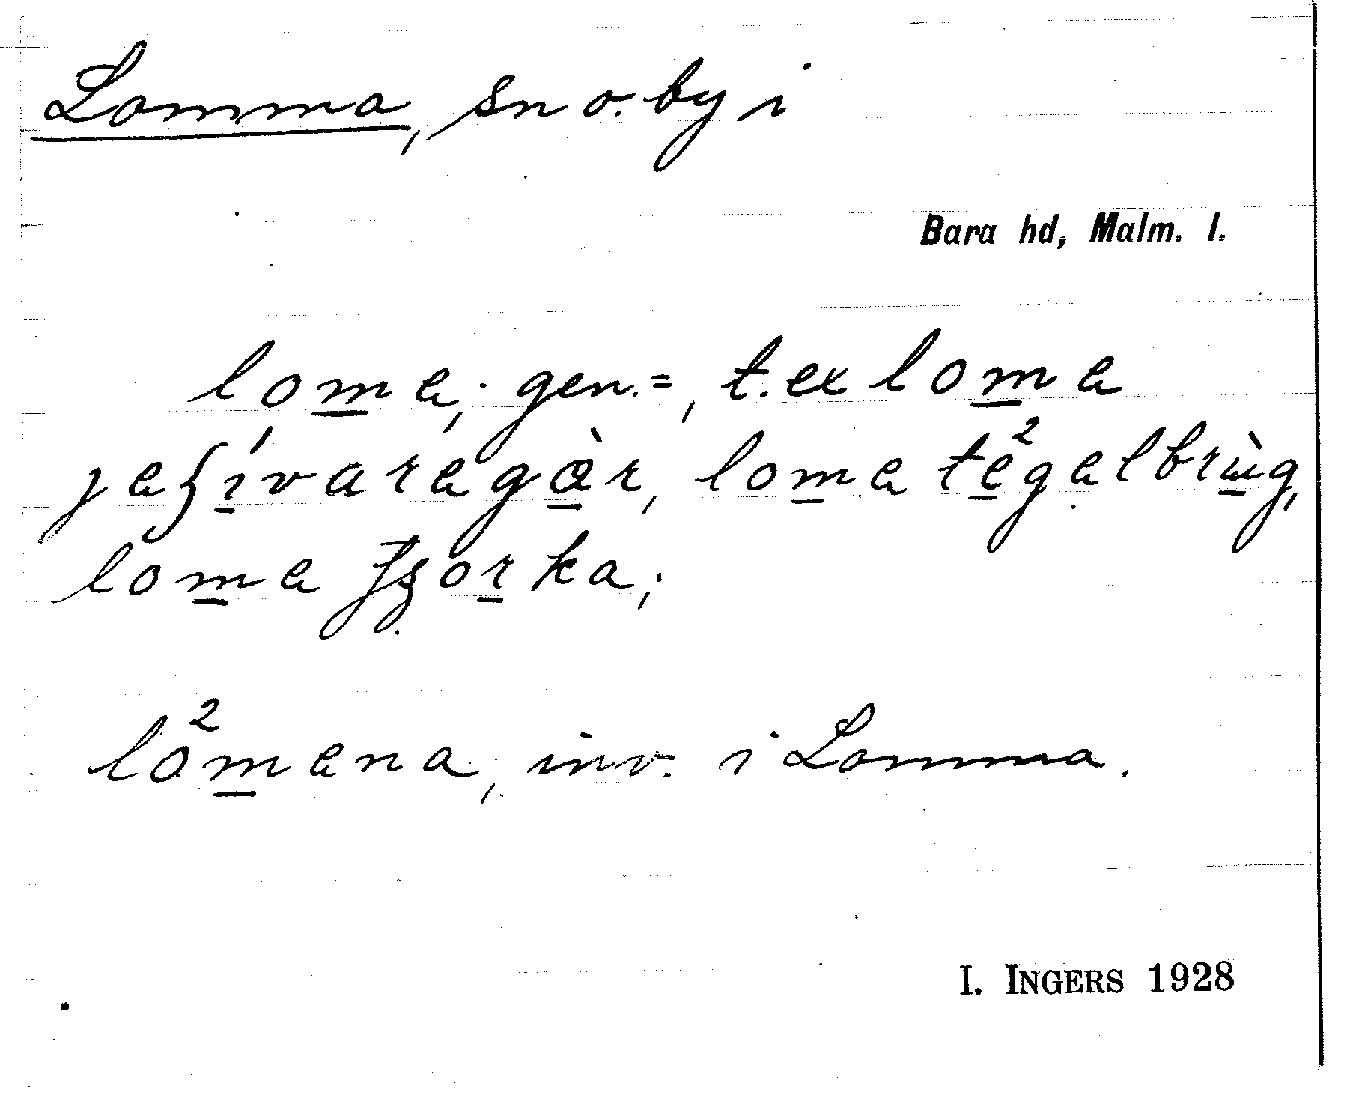 Lomma, sn o. by i
Bara hd, Malm. l.
loma; gen. =, t. ex loma
jaʃívaragàr, loma te²galbrùg,
loma ʃȷorka;
lo²mana, inv. i Lomma.
I. INGERS 1928